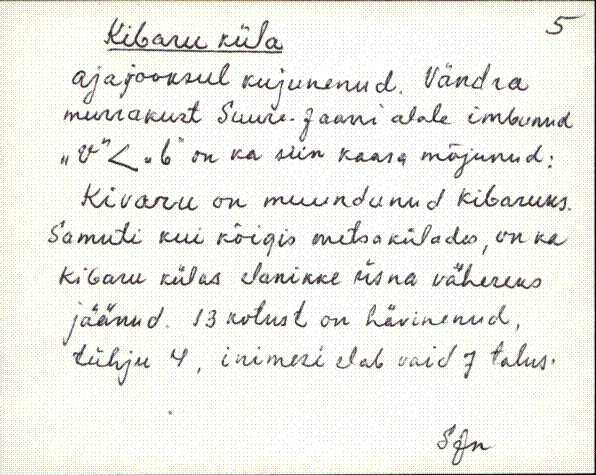 5
Kibaru küla
ajajooksul kujunenud. Vändra
murrakust Suure-Jaani alale imbunud
„v”<„b” on ka siin kaasa mõjunud:
Kivaru on muundunud Kibaruks.
Samuti kui kõigis metsakülades, on ka
Kibaru külas elanikke üsna väheseks
jäänud. 13 kotust on hävinenud,
tühju 4, inimesi elab vaid 7 talus.
SJn